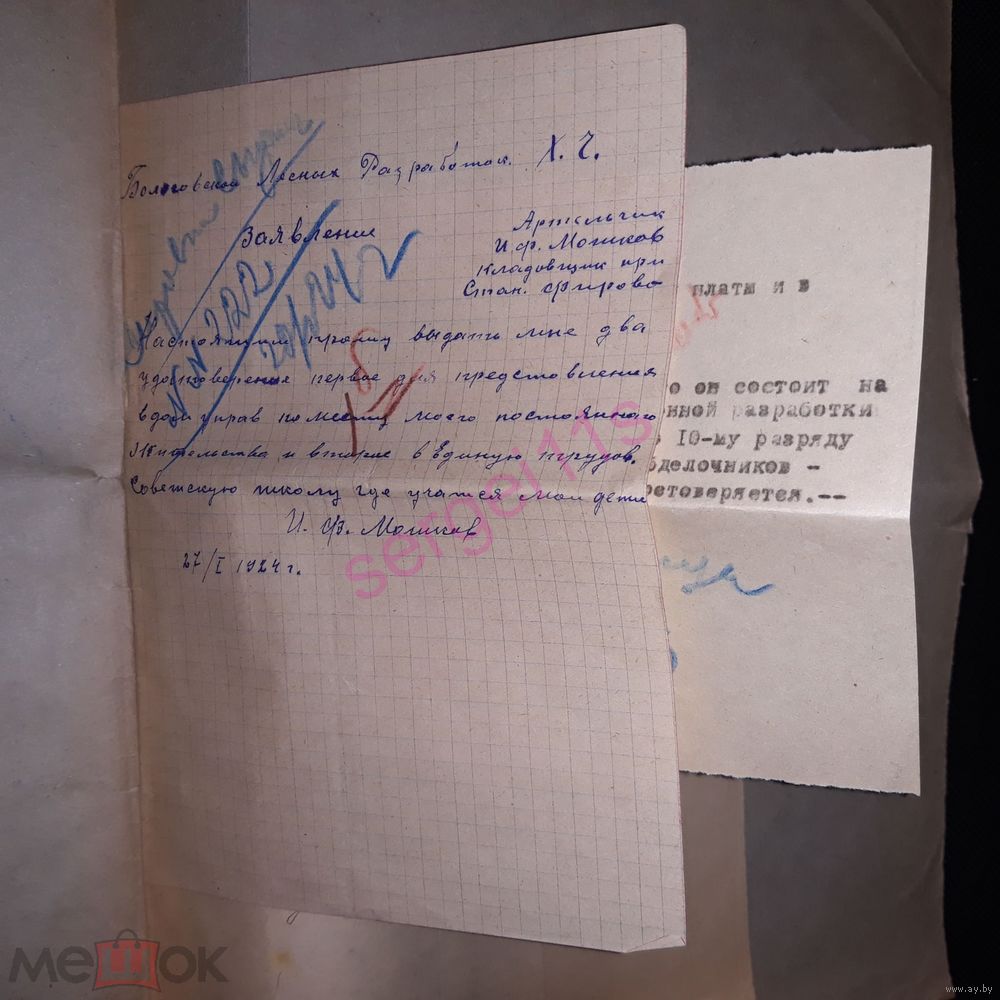 Лесных Разработок. Х. Ч.
Заявление
Артельчик
И. Ф. Мошков
Кладовщик при
Стан. Фирово
Настоящим прошу выдать мне два
удостоверения первое для представления
в домоуправ по месту моего постоянного
Жительства и второе в Единую трудов.
Советскую школу где учатся мои дети
И. Ф. Мошков
27/I 1924 г.
№ 2122
платы и в
о он состоит на
нной разработки
10-му разряду
делочников -
етоверяется.--
sergei11s
мешок
www.ay.by